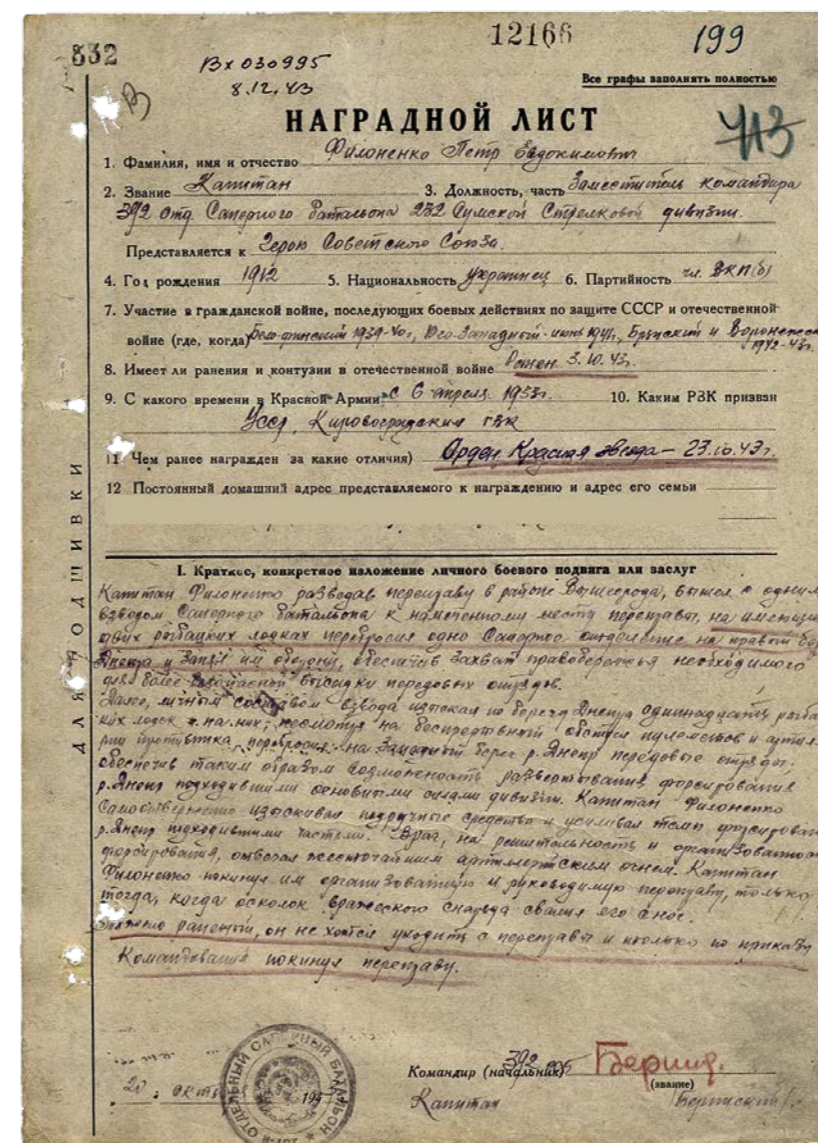 832
12166
199
Вх 030995
8.12.43
Все графы заполнять полностью
В
НАГРАДНОЙ ЛИСТ
713
1. Фамилия, имя и отчество Филоненко Петр Евдокимович
2. Звание Капитан 3. Должность, часть Заместитель командира
392 отд. Саперного батальона 232 Сумской Стрелковой дивизии.
Представляется к Герою Советского Союза.
4. Год рождения 1912 5. Национальность Украинец 6. Партийность чл. ВКП(б)
7. Участие в гражданской войне, последующих боевых действиях по защите СССР и отечественной
войне (где, когда) Бело-финский 1939-40г, Юго-Западный - июнь 1941г, Брянский и Воронежск
1942-43г.
8. Имеет ли ранения и контузии в отечественной войне Ранен 3.10.43г.
9. С какого времени в Красной Армии с 6 апреля 1933г. 10. Каким РВК призван
УССР, Кировоградским ГВК
11 Чем ранее награжден за какие отличия) Орден Красная звезда - 23.10.43г.
12 Постоянный домашний адрес представляемого к награждению и адрес его семьи
ДЛЯ ПОДШИВКИ
I. Краткое, конкретное изложение личного боевого подвига или заслуг
Капитан Филоненко разведав переправу в районе Вышгорода, вышел с одним
взводом Саперного батальона к намеченному месту переправы, на имеющи
двух рыбацких лодках перебросил одно Саперное отделение на правый бер
Днепра и занял им оборону, обеспечив захват правобережья необходимого
для более безопасной высадки передовых отрядов.
Далее, личным составом взвода изыскал по берегу Днепра одиннадцать рыба
ких лодок и на них, несмотря на беспрерывный обстрел пулеметов и артил
рии противника, перебросил на Западный берег р. Днепр передовые отряды,
обеспечив таким образом возможность развертывания форсирования
р. Днепр подходившими основными силами дивизии. Капитан Филоненко
Самоотверженно изыскивал подручные средства и усиливал темп форсирован
р. Днепр подходившими частями. Враг, на решительность и организованность
форсирования, отвечал жесточайшим артиллерийским огнем. Капитан
Филоненко покинул им организованную и руководимую переправу, только
тогда, когда осколок вражеского снаряда свалил его с ног.
Тяжело раненый, он не хотел уходить с переправы и только по приказу
Командования покинул переправу.
Командир (начальник) 392
Капитан
(звание)
20 октя 194
ОТДЕЛЬНЫЙ САПЕРНЫЙ БАТАЛЬОН